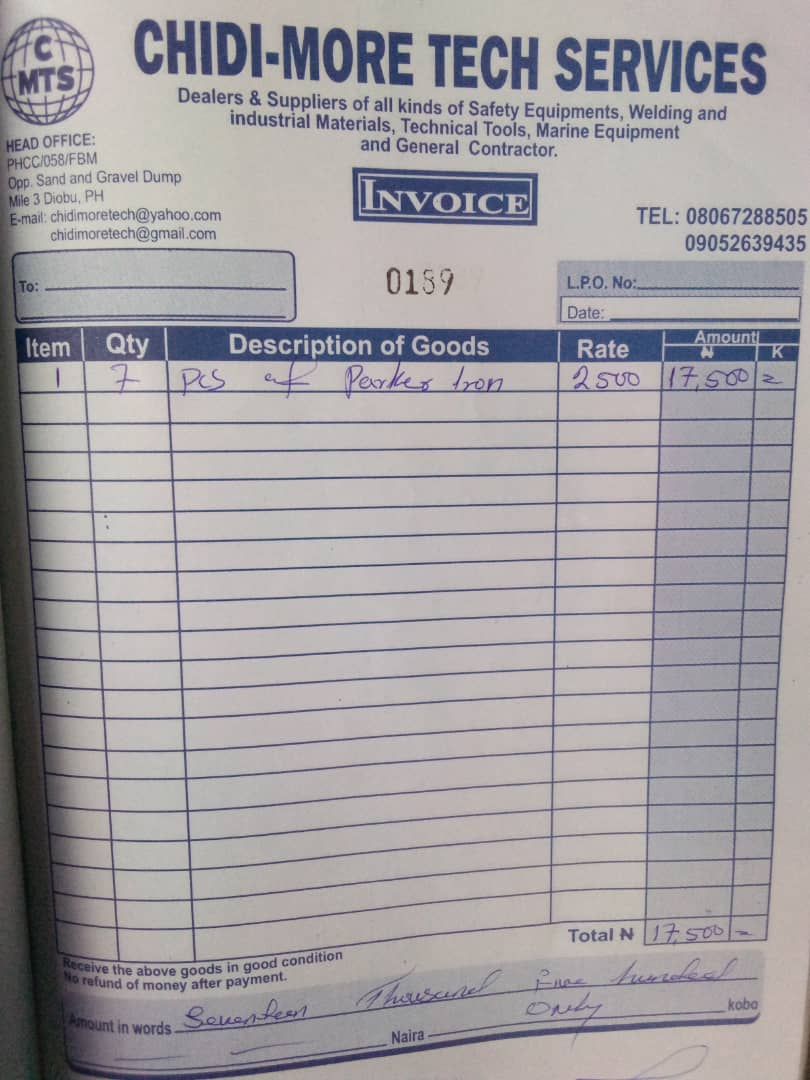 C
MTS
CHIDI-MORE TECH SERVICES
Dealers & Suppliers of all kinds of Safety Equipments, Welding and
industrial Materials, Technical Tools, Marine Equipment
and General Contractor.
HEAD OFFICE:
PHCC/058/FBM
Opp. Sand and Gravel Dump
Mile 3 Diobu, PH
E-mail: chidimoretech@yahoo.com
chidimoretech@gmail.com
INVOICE
TEL: 08067288505
09052639435
To:
0189
L.P.O. No:
Date:
Item Qty Description of Goods Rate Amount ₦ K
1 7 pcs of Parker Iron 2500 17,500 =
Total ₦ 17,500 =
Receive the above goods in good condition
No refund of money after payment.
Amount in words Seventeen Thousand Five hundred
Only
Naira kobo